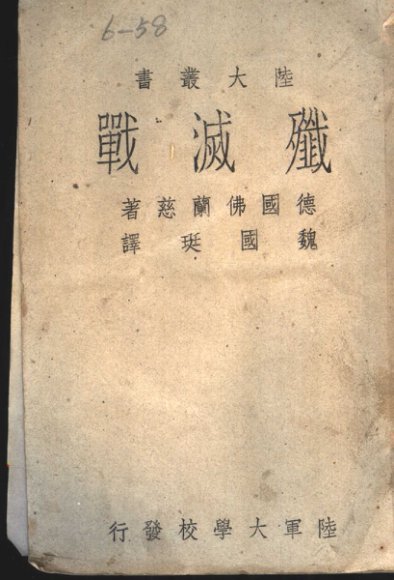 6-58
陸大叢書
殲滅戰
德國佛蘭慈著
魏國珽譯
陸軍大學校發行